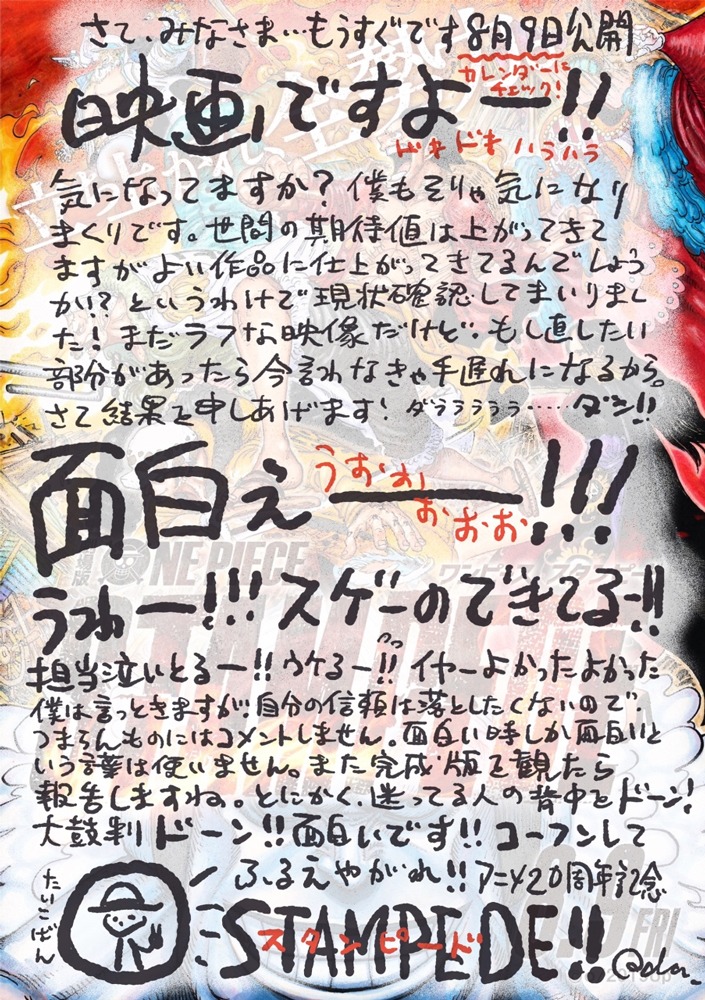 さて、みなさま…もうすぐです8月9日公開
カレンダーに
チェック!
映画ですよー!!
ドキドキ ハラハラ
気になってますか? 僕もそりゃ気になり
まくりです。世間の期待値は上がってきて
ますがよい作品に仕上がってきてるんでしょう
か!? というわけで現状確認してまいりまし
た! まだラフな映像だけど、もし直したい
部分があったら今言わなきゃ手遅れになるから。
さて結果を申しあげます! ダララララ……ダン!!
面白ぇ――!!!
うおお
おおお
うわー!!! スゲーのできてる!!
担当泣いとるー!! ウケるー!! イヤーよかったよかった
僕は言っときますが、自分の信頼は落としたくないので、
つまらんものにはコメントしません。面白い時しか面白いと
いう言葉は使いません。また完成版を観たら
報告しますね。とにかく、迷ってる人の背中をドーン!
太鼓判ドーン!!面白いです!! コーフンして
ふるえやがれ!! アニメ20周年記念
たいこばん
STAMPEDE!!
スタンピード
ONE PIECE
8.9 FRI